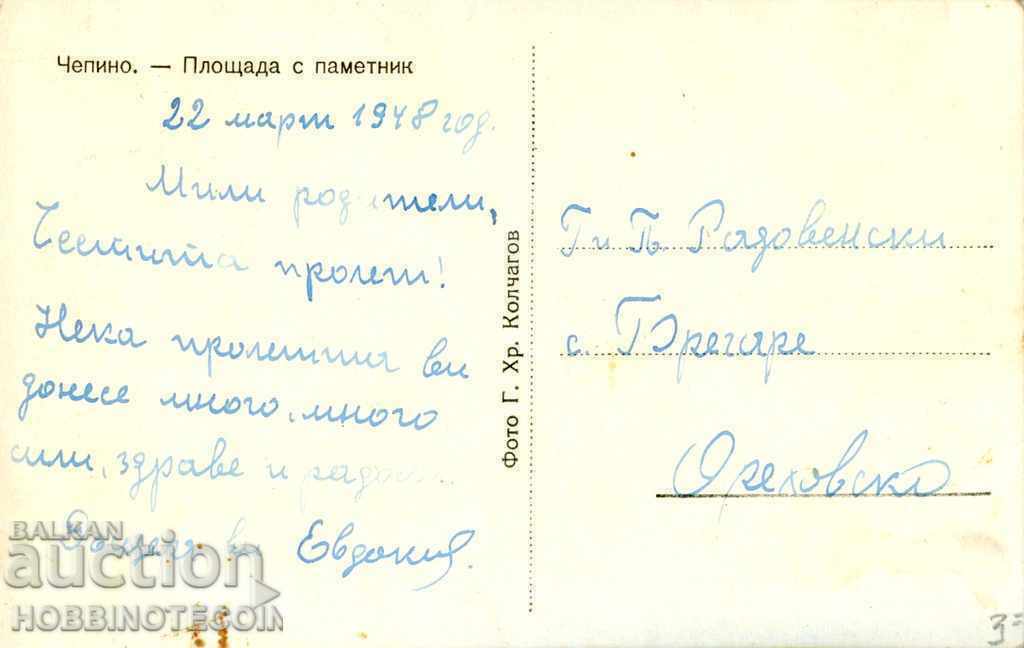 Чепино. — Площада с паметник
22 март 1948 год.
Мили родители,
Честита пролет!
Нека пролетта ви
донесе много, много
сили, здраве и
ви Евдокия.
Фото Г. Хр. Колчагов
Радовенски
с. Брегаре
Ореховско
BALKAN
auction
HOBBINOTECOIN